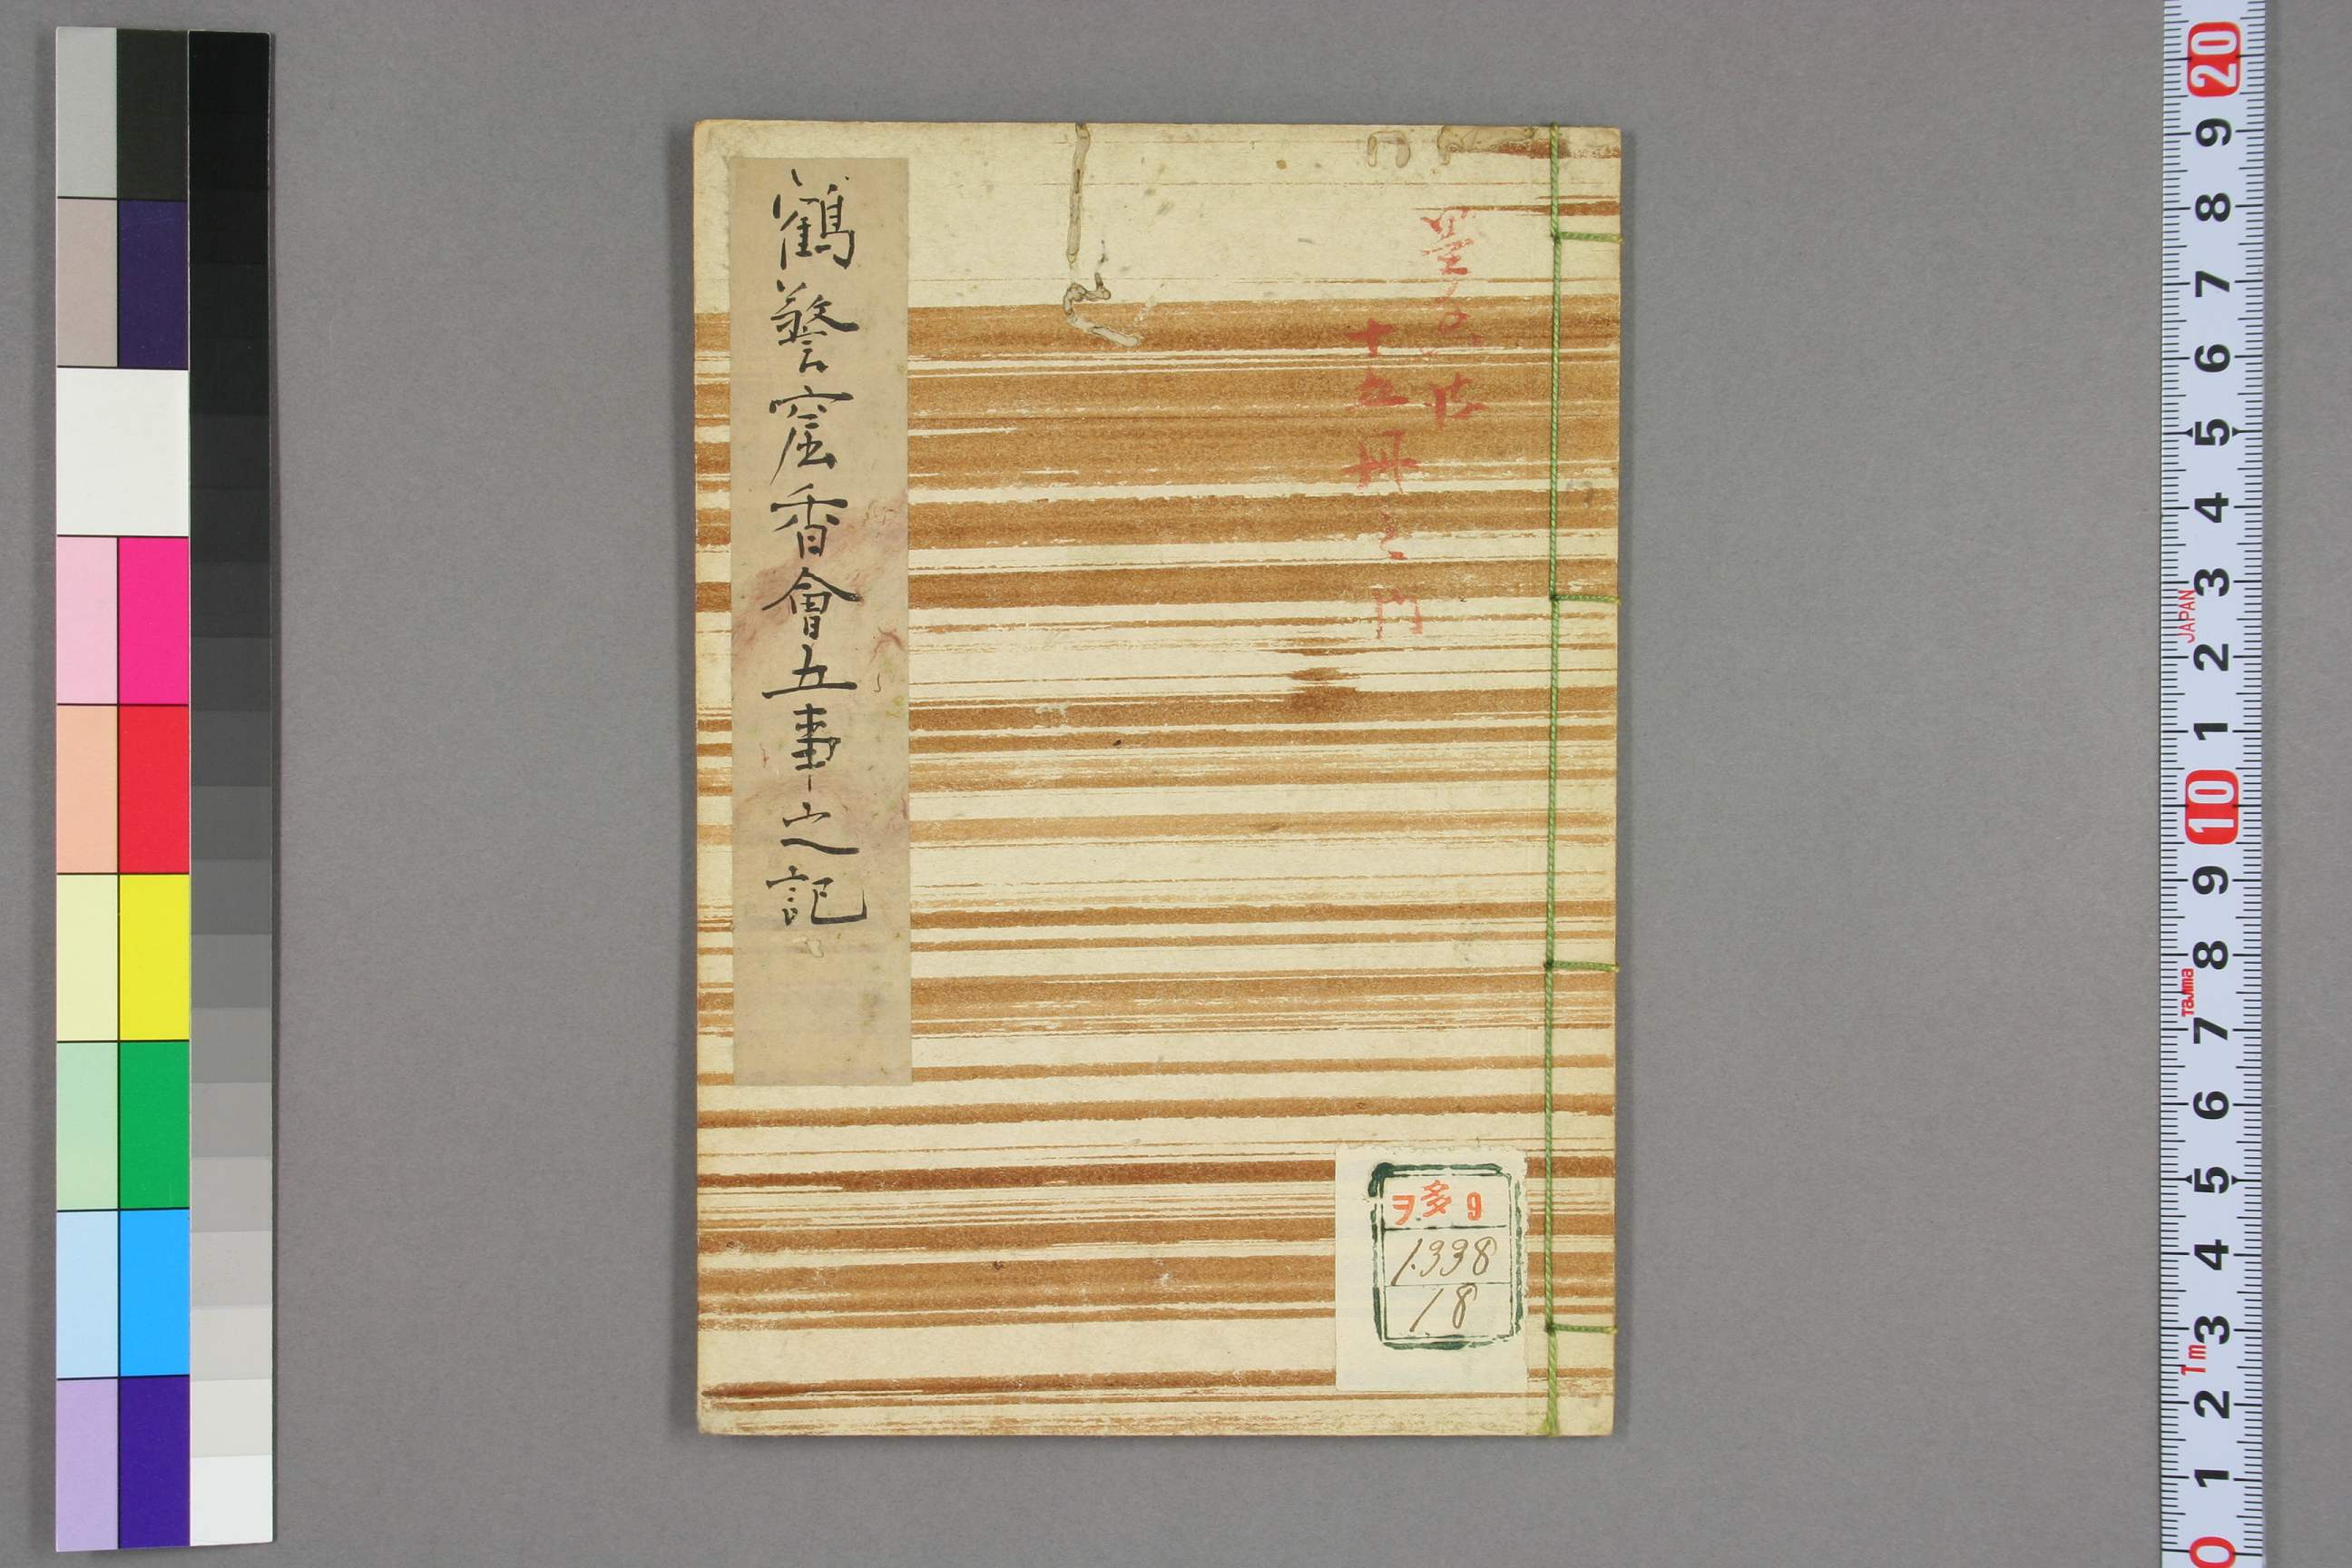 鶴警窟香會五事之記
十五冊之内
ヲ多9
1338
18
0 1 2 3 4 5 6 7 8 9 10 1 2 3 4 5 6 7 8 9 20
1m
Tajima
JAPAN